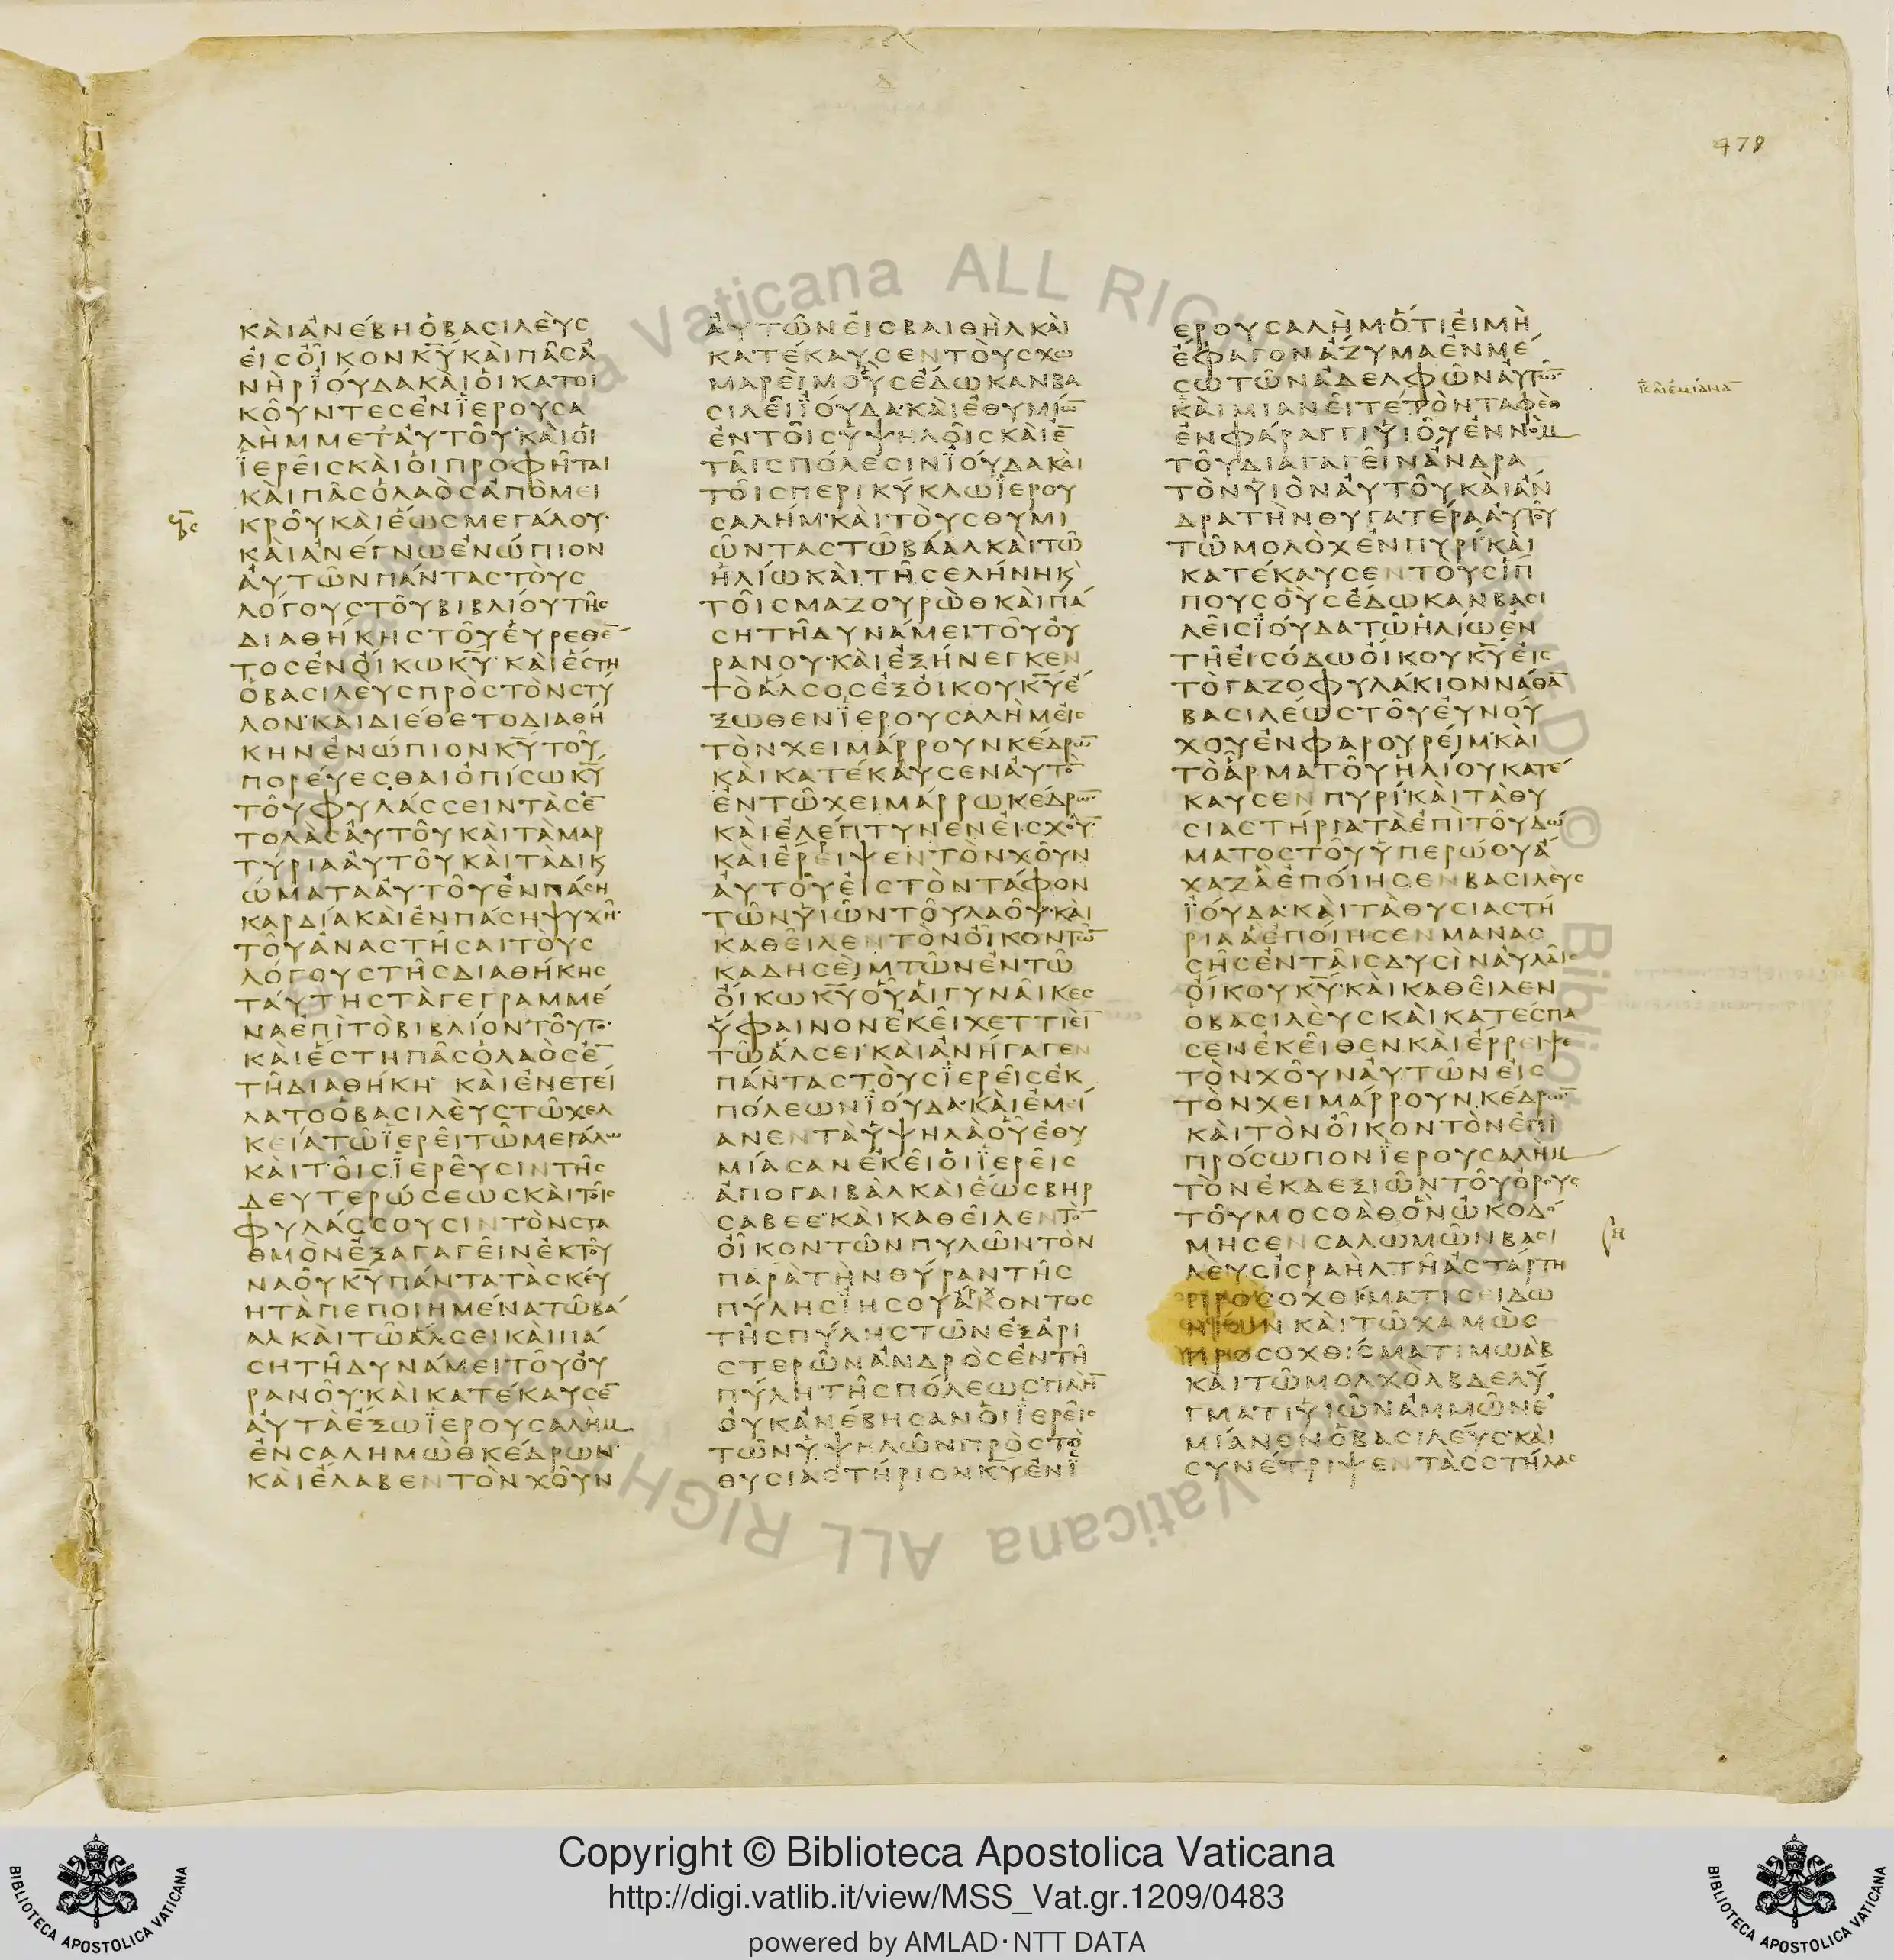 478
ΚΑΙΑΝΕΒΗΟΒΑΣΙΛΕΥΣ
ΕΙΣΟΙΚΟΝΚΥΚΑΙΠΑΣΑ
ΝΗΡΪΟΥΔΑΚΑΙΟΙΚΑΤΟΙ
ΚΟΥΝΤΕΣΕΝΪΕΡΟΥΣΑ
ΛΗΜΜΕΤΑΥΤΟΥ·ΚΑΙΟΙ
ΪΕΡΕΙΣΚΑΙΟΙΠΡΟΦΗΤΑΙ
ΚΑΙΠΑΣΟΛΑΟΣΑΠΟΜΕΙ
ΚΡΟΥΚΑΙΕΩΣΜΕΓΑΛΟΥ·
ΚΑΙΑΝΕΓΝΩΕΝΩΠΙΟΝ
ΑΥΤΩΝΠΑΝΤΑΣΤΟΥΣ
ΛΟΓΟΥΣΤΟΥΒΙΒΛΙΟΥΤΗΣ
ΔΙΑΘΗΚΗΣΤΟΥΕΥΡΕΘΕ̅
ΤΟΣΕΝΟΙΚΩΚΥ·ΚΑΙΕΣΤΗ
ΟΒΑΣΙΛΕΥΣΠΡΟΣΤΟΝΣΤΥ
ΛΟΝ·ΚΑΙΔΙΕΘΕΤΟΔΙΑΘΗ
ΚΗΝΕΝΩΠΙΟΝΚΥΤΟΥ
ΠΟΡΕΥΕΣΘΑΙΟΠΙΣΩΚΥ
ΤΟΥΦΥΛΑΣΣΕΙΝΤΑΣΕ̅
ΤΟΛΑΣΑΥΤΟΥΚΑΙΤΑΜΑΡ
ΤΥΡΙΑΑΥΤΟΥΚΑΙΤΑΔΙΚ
ΩΜΑΤΑΑΥΤΟΥΕΝΠΑΣΗ
ΚΑΡΔΙΑΚΑΙΕΝΠΑΣΗΨΥΧΗ·
ΤΟΥΑΝΑΣΤΗΣΑΙΤΟΥΣ
ΛΟΓΟΥΣΤΗΣΔΙΑΘΗΚΗΣ
ΤΑΥΤΗΣΤΑΓΕΓΡΑΜΜΕ
ΝΑΕΠΙΤΟΒΙΒΛΙΟΝΤΟΥΤΟ·
ΚΑΙΕΣΤΗΠΑΣΟΛΑΟΣΕ̅
ΤΗΔΙΑΘΗΚΗ· ΚΑΙΕΝΕΤΕΙ
ΛΑΤΟΟΒΑΣΙΛΕΥΣΤΩΧΕΛ
ΚΕΙΑΤΩΪΕΡΕΙΤΩΜΕΓΑΛΩ
ΚΑΙΤΟΙΣΪΕΡΕΥΣΙΝΤΗΣ
ΔΕΥΤΕΡΩΣΕΩΣΚΑΙΤΟΙΣ
ΦΥΛΑΣΣΟΥΣΙΝΤΟΝΣΤΑ
ΘΜΟΝΕΞΑΓΑΓΕΙΝΕΚΤΟΥ
ΝΑΟΥΚΥΠΑΝΤΑΤΑΣΚΕΥ
ΗΤΑΠΕΠΟΙΗΜΕΝΑΤΩΒΑ
ΑΛΚΑΙΤΩΑΛΣΕΙΚΑΙΠΑ
ΣΗΤΗΔΥΝΑΜΕΙΤΟΥΟΥ
ΡΑΝΟΥ·ΚΑΙΚΑΤΕΚΑΥΣΕ̅
ΑΥΤΑΕΞΩΪΕΡΟΥΣΑΛΗΜ
ΕΝΣΑΛΗΜΩΘΚΕΔΡΩΝ·
ΚΑΙΕΛΑΒΕΝΤΟΝΧΟΥΝ
ΑΥΤΩΝΕΙΣΒΑΙΘΗΛΚΑΙ
ΚΑΤΕΚΑΥΣΕΝΤΟΥΣΧΩ
ΜΑΡΕΙΜΟΥΣΕΔΩΚΑΝΒΑ
ΣΙΛΕΙΪΟΥΔΑ·ΚΑΙΕΘΥΜΙΩ̅
ΕΝΤΟΙΣΥΨΗΛΟΙΣΚΑΙΕ̅
ΤΑΙΣΠΟΛΕΣΙΝΪΟΥΔΑΚΑΙ
ΤΟΙΣΠΕΡΙΚΥΚΛΩΪΕΡΟΥ
ΣΑΛΗΜ·ΚΑΙΤΟΥΣΘΥΜΙ
ΩΝΤΑΣΤΩΒΑΑΛΚΑΙΤΩ
ΗΛΙΩΚΑΙΤΗΣΕΛΗΝΗΚ
ΤΟΙΣΜΑΖΟΥΡΩΘΚΑΙΠΑ
ΣΗΤΗΔΥΝΑΜΕΙΤΟΥΟΥ
ΡΑΝΟΥ·ΚΑΙΕΞΗΝΕΓΚΕΝ
ΤΟΑΛΣΟΣΕΞΟΙΚΟΥΚΥΕ
ΞΩΘΕΝΪΕΡΟΥΣΑΛΗΜΕΙΣ
ΤΟΝΧΕΙΜΑΡΡΟΥΝΚΕΔΡΩ̅
ΚΑΙΚΑΤΕΚΑΥΣΕΝΑΥΤΟ̅
ΕΝΤΩΧΕΙΜΑΡΡΩΚΕΔΡΩ̅
ΚΑΙΕΛΕΠΤΥΝΕΝΕΙΣΧΟΥ̅
ΚΑΙΕΡΕΙΨΕΝΤΟΝΧΟΥΝ
ΑΥΤΟΥΕΙΣΤΟΝΤΑΦΟΝ
ΤΩΝΥΙΩΝΤΟΥΛΑΟΥ·ΚΑΙ
ΚΑΘΕΙΛΕΝΤΟΝΟΙΚΟΝΤΩ̅
ΚΑΔΗΣΕΙΜΤΩΝΕΝΤΩ
ΟΙΚΩΚΥΟΥΑΙΓΥΝΑΙΚΕΣ
ΥΦΑΙΝΟΝΕΚΕΙΧΕΤΤΙΕΙ̅
ΤΩΑΛΣΕΙ·ΚΑΙΑΝΗΓΑΓΕΝ
ΠΑΝΤΑΣΤΟΥΣΪΕΡΕΙΣΕΚ
ΠΟΛΕΩΝΪΟΥΔΑ·ΚΑΙΕΜΕΙ
ΑΝΕΝΤΑΥΨΗΛΑΟΥΕΘΥ
ΜΙΑΣΑΝΕΚΕΙΟΙΪΕΡΕΙΣ
ΑΠΟΓΑΙΒΑΛΚΑΙΕΩΣΒΗΡ
ΣΑΒΕΕ·ΚΑΙΚΑΘΕΙΛΕΝΤΟ̅
ΟΙΚΟΝΤΩΝΠΥΛΩΝΤΟΝ
ΠΑΡΑΤΗΝΘΥΡΑΝΤΗΣ
ΠΥΛΗΣΪΗΣΟΥΑΡΧΟΝΤΟΣ
ΤΗΣΠΥΛΗΣΤΩΝΕΞΑΡΙ
ΣΤΕΡΩΝΑΝΔΡΟΣΕΝΤΗ
ΠΥΛΗΤΗΣΠΟΛΕΩΣ·ΠΛΗ̅
ΟΥΚΑΝΕΒΗΣΑΝΟΙΪΕΡΕΙΣ
ΤΩΝΥΨΗΛΩΝΠΡΟΣΤΟ
ΘΥΣΙΑΣΤΗΡΙΟΝΚΥΕΝΪ
ΕΡΟΥΣΑΛΗΜ·ΟΤΙΕΙΜΗ
ΕΦΑΓΟΝΑΖΥΜΑΕΝΜΕ
ΣΩΤΩΝΑΔΕΛΦΩΝΑΥΤΩ̅
ΚΑΙΜΙΑΝΕΙΤΕΤΟΝΤΑΦΕΘ
ΕΝΦΑΡΑΓΓΙΥΙΟΥΕΝΝΟΜ
ΤΟΥΔΙΑΓΑΓΕΙΝΑΝΔΡΑ
ΤΟΝΥΙΟΝΑΥΤΟΥΚΑΙΑΝ
ΔΡΑΤΗΝΘΥΓΑΤΕΡΑΑΥΤΟΥ
ΤΩΜΟΛΟΧΕΝΠΥΡΙ·ΚΑΙ
ΚΑΤΕΚΑΥΣΕΝΤΟΥΣΙΠ
ΠΟΥΣΟΥΣΕΔΩΚΑΝΒΑΣΙ
ΛΕΙΣΪΟΥΔΑΤΩΗΛΙΩΕΝ
ΤΗΕΙΣΟΔΩΟΙΚΟΥΚΥΕΙΣ
ΤΟΓΑΖΟΦΥΛΑΚΙΟΝΝΑΘΑ̅
ΒΑΣΙΛΕΩΣΤΟΥΕΥΝΟΥ
ΧΟΥΕΝΦΑΡΟΥΡΕΙΜ·ΚΑΙ
ΤΟΑΡΜΑΤΟΥΗΛΙΟΥΚΑΤΕ
ΚΑΥΣΕΝΠΥΡΙ·ΚΑΙΤΑΘΥ
ΣΙΑΣΤΗΡΙΑΤΑΕΠΙΤΟΥΔΩ
ΜΑΤΟΣΤΟΥΥΠΕΡΩΟΥΑ
ΧΑΖΑΕΠΟΙΗΣΕΝΒΑΣΙΛΕΥΣ
ΪΟΥΔΑ·ΚΑΙΤΑΘΥΣΙΑΣΤΗ
ΡΙΑΑΕΠΟΙΗΣΕΝΜΑΝΑΣ
ΣΗΣΕΝΤΑΙΣΔΥΣΙΝΑΥΛΑΙΣ
ΟΙΚΟΥΚΥ·ΚΑΙΚΑΘΕΙΛΕΝ
ΟΒΑΣΙΛΕΥΣΚΑΙΚΑΤΕΣΠΑ
ΣΕΝΕΚΕΙΘΕΝ·ΚΑΙΕΡΡΕΙΨΕ
ΤΟΝΧΟΥΝΑΥΤΩΝΕΙΣ
ΤΟΝΧΕΙΜΑΡΡΟΥΝΚΕΔΡΩ̅·
ΚΑΙΤΟΝΟΙΚΟΝΤΟΝΕΠΙ
ΠΡΟΣΩΠΟΝΪΕΡΟΥΣΑΛΗΜ
ΤΟΝΕΚΔΕΞΙΩΝΤΟΥΟΡΟΥΣ
ΤΟΥΜΟΣΟΑΘΟΝΩΚΟΔΟ
ΜΗΣΕΝΣΑΛΩΜΩΝΒΑΣΙ
ΛΕΥΣΙΣΡΑΗΛΤΗΑΣΤΑΡΤΗ
ΠΡΟΣΟΧΘΙΜΑΤΙΣΕΙΔΩ
ΝΙΩΝΚΑΙΤΩΧΑΜΩΣ
ΠΡΟΣΟΧΘΙΣΜΑΤΙΜΩΑΒ
ΚΑΙΤΩΜΟΛΧΟΛΒΔΕΛΥ
ΓΜΑΤΙΥΙΩΝΑΜΜΩΝΕ
ΜΙΑΝΕΝΟΒΑΣΙΛΕΥΣ·ΚΑΙ
ΣΥΝΕΤΡΙΨΕΝΤΑΣΣΤΗΛΑΣ
Copyright © Biblioteca Apostolica Vaticana
http://digi.vatlib.it/view/MSS_Vat.gr.1209/0483
powered by AMLAD·NTT DATA
BIBLIOTECA APOSTOLICA VATICANA
BIBLIOTECA APOSTOLICA VATICANA